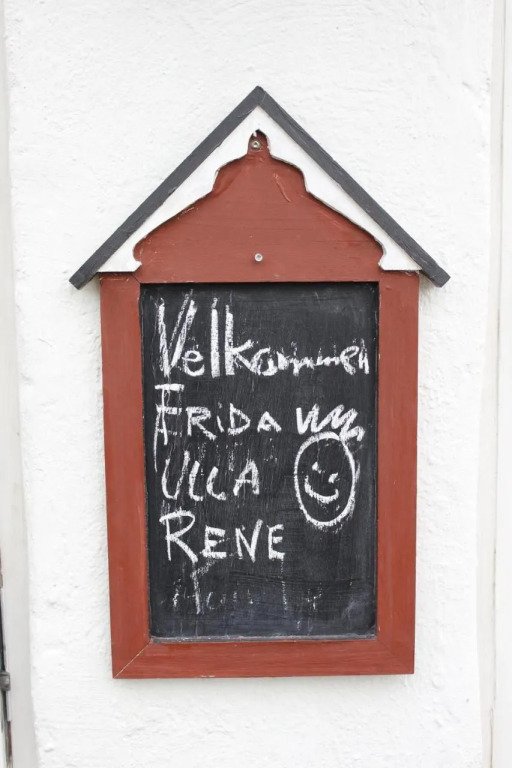 Velkommen
FRIDA
ULLA
RENE